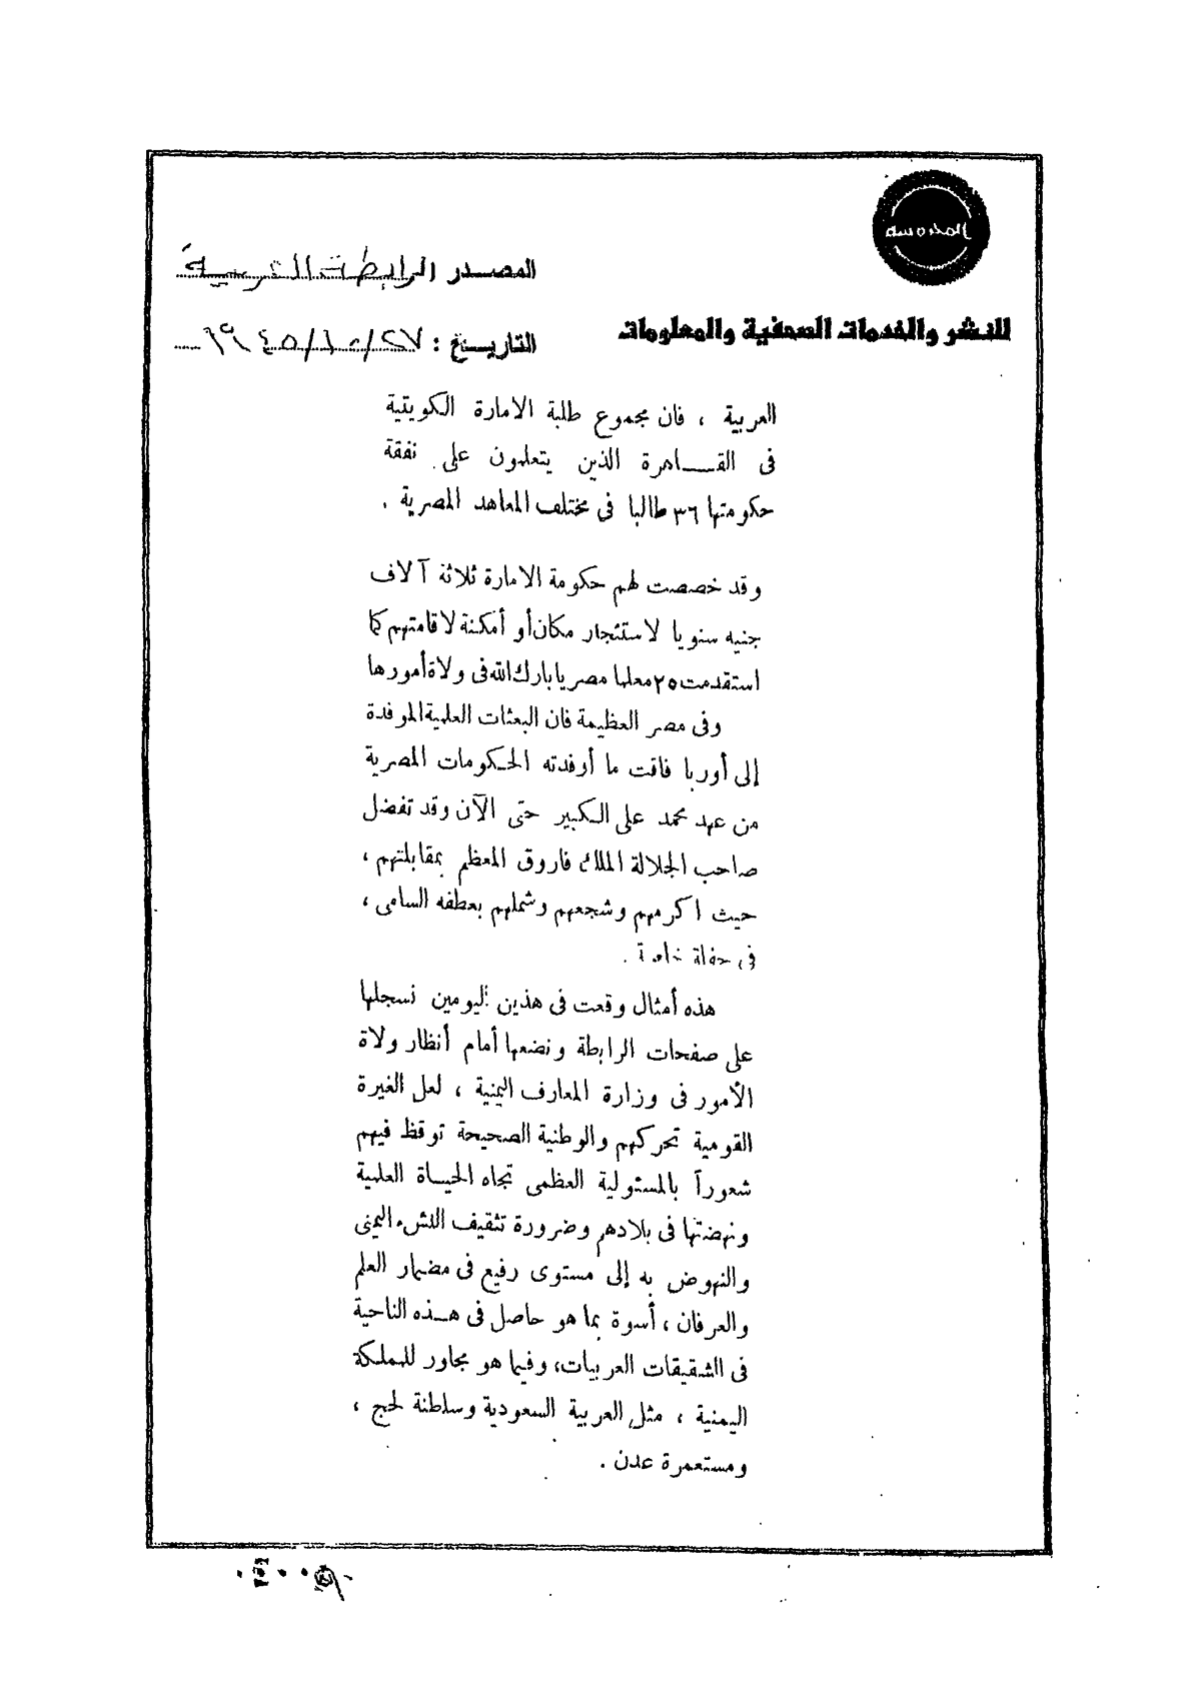 المصدر الرابطة العربية
للنشر والخدمات الصحفية والمعلومات
التاريخ : ٢٧/١٠/١٩٤٥
العربية ، فان مجموع طلبة الامارة الكويتية
فى القـــاهرة الذين يتعلمون على نفقة
حكومتها ٣٦ طالبا فى مختلف المعاهد المصرية .
وقد خصصت لهم حكومة الامارة ثلاثة آلاف
جنيه سنويا لاستئجار مكان أو أمكنة لاقامتهم كما
استقدمت ٢٥ معلما مصريا بارك الله فى ولاة أمورها
وفى مصر العظيمة فان البعثات العلمية الموفدة
إلى أوربا فاقت ما أوفدته الحكومات المصرية
من عهد محمد على الكبير حتى الآن وقد تفضل
صاحب الجلالة الملك فاروق المعظم بمقابلتهم ،
حيث اكرمهم وشجعهم وشملهم بعطفه السامى ،
فى حفلة خاصة .
هذه أمثال وقعت فى هذين اليومين نسجلها
على صفحات الرابطة ونضعها أمام أنظار ولاة
الأمور فى وزارة المعارف اليمنية ، لعل الغيرة
القومية تحركهم والوطنية الصحيحة توقظ فيهم
شعوراً بالمسئولية العظمى تجاه الحياة العلمية
ونهضتها فى بلادهم وضرورة تثقيف النشء اليمنى
والنهوض به إلى مستوى رفيع فى مضمار العلم
والعرفان ، أسوة بما هو حاصل فى هـذه الناحية
فى الشقيقات العربيات، وفيما هو مجاور للمملكة
اليمنية ، مثل العربية السعودية وسلطنة لحج ،
ومستعمرة عدن .